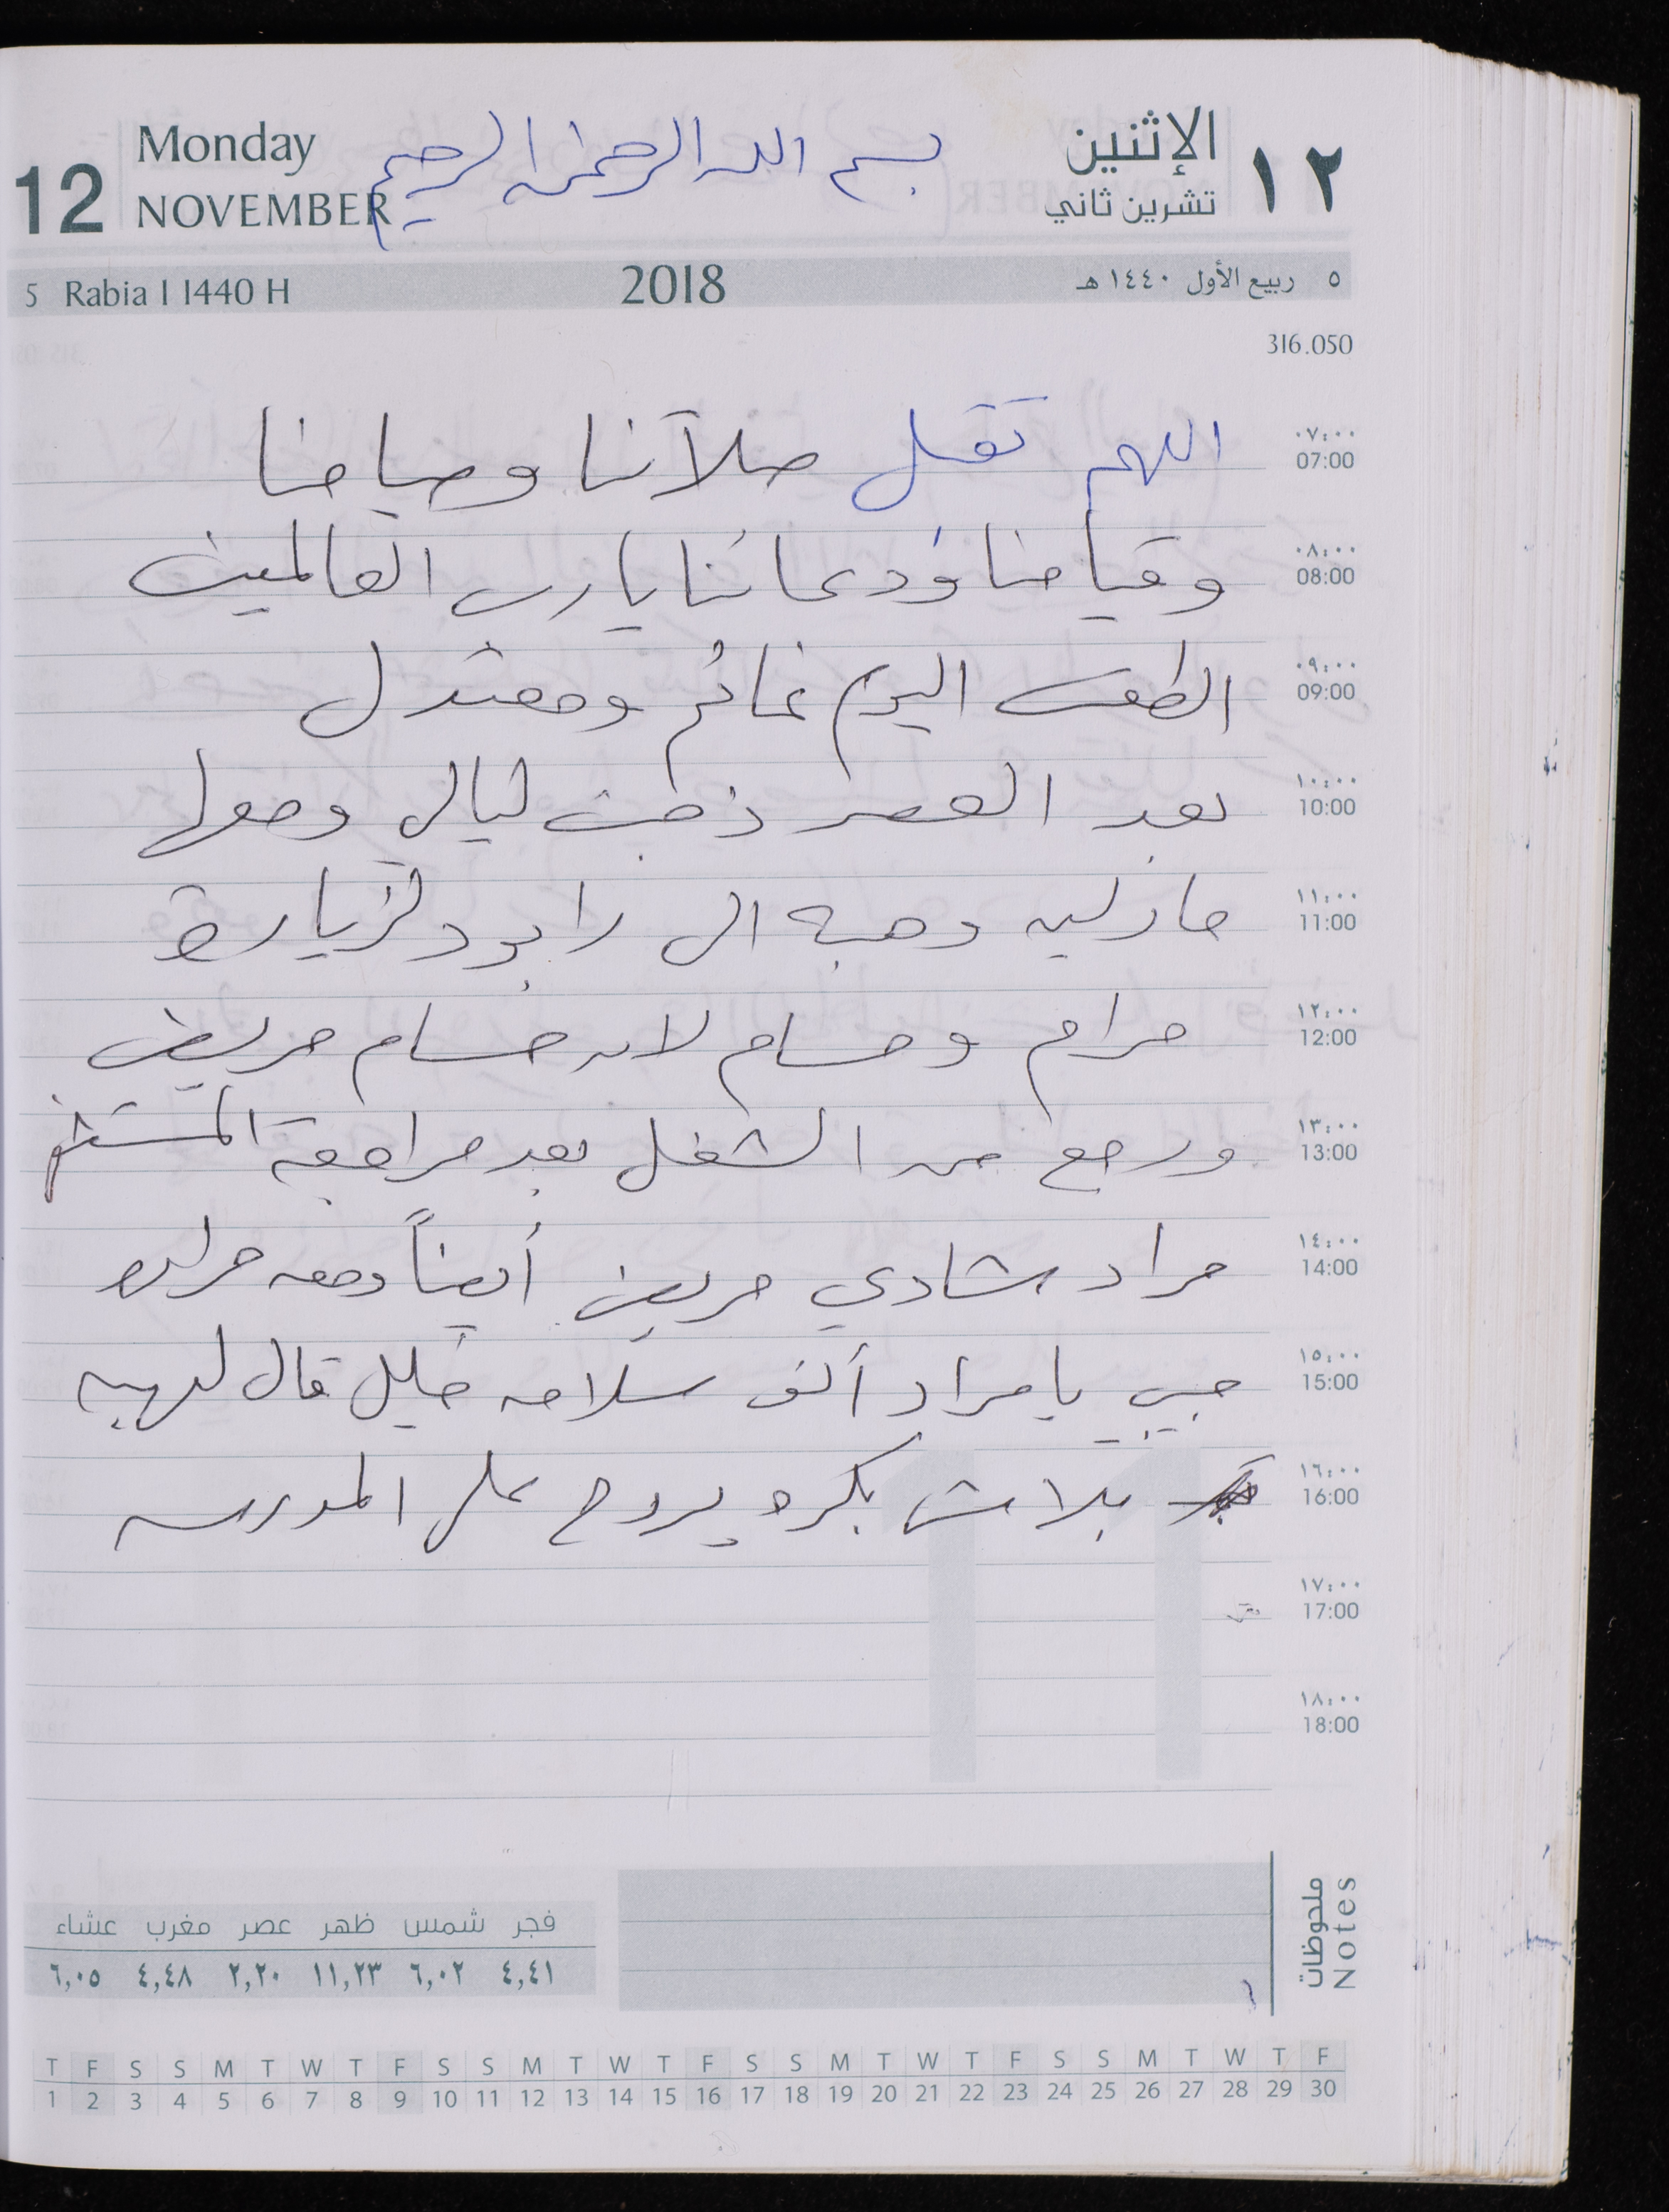 12
Monday
NOVEMBER
بسم الله الرحمن الرحيم
الإثنين
تشرين ثاني
١٢
5 Rabia I 1440 H
2018
٥ ربيع الأول ١٤٤٠ هـ
316.050
٠٧:٠٠
07:00
اللهم تقبل صلاتنا وصيامنا
٠٨:٠٠
08:00
وقيامنا ودعائنا يا رب العالمين
٠٩:٠٠
09:00
الطقس اليوم غائم ومعتدل
١٠:٠٠
10:00
بعد العصر ذهبت ليالي ومعها
١١:٠٠
11:00
مارلين وهبه الى رابود لزيارة
١٢:٠٠
12:00
مرام وحسام لان حسام مريض
١٣:٠٠
13:00
ورجع من الشغل بعد مراجعة المستشفى
١٤:٠٠
14:00
مراد شادي مريض أيضاً ومعه حراره
١٥:٠٠
15:00
حبيبي يا مراد ألف سلامه خليل قال لهبه
١٦:٠٠
16:00
بلاش بكره يروح على المدرسه
١٧:٠٠
17:00
١٨:٠٠
18:00
ملحوظات
Notes
فجر شمس ظهر عصر مغرب عشاء
٤,٤١ ٦,٠٢ ١١,٢٣ ٢,٢٠ ٤,٤٨ ٦,٠٥
T F S S M T W T F S S M T W T F S S M T W T F S S M T W T F
1 2 3 4 5 6 7 8 9 10 11 12 13 14 15 16 17 18 19 20 21 22 23 24 25 26 27 28 29 30